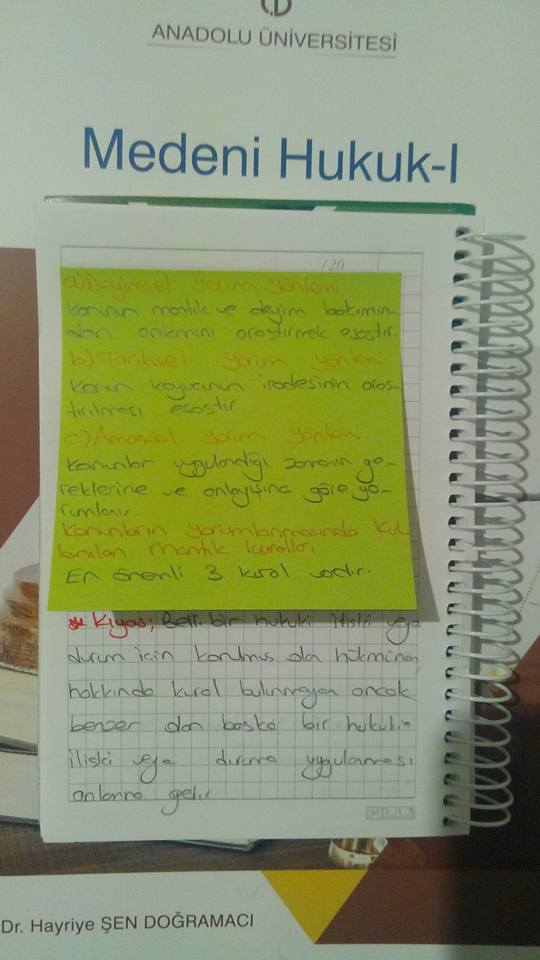 ANADOLU ÜNİVERSİTESİ
Medeni Hukuk-I
/20
a) Deyimsel yorum yöntemi
Kanunun mantık ve deyim bakımın-
dan anlamını araştırmak esastır.
b) Tarihsel yorum yöntemi
Kanun koyucunun iradesinin araş-
tırılması esastır
c) Amaçsal yorum yöntemi
Kanunlar uygulandığı zamanın ge-
reklerine ve anlayışına göre yo-
rumlanır.
Kanunların yorumlanmasında kul
lanılan mantık kuralları
En önemli 3 kural vardır.
* Kıyas; Belli bir hukuki ilişki veya
durum için konulmuş olan hükmünün,
hakkında kural bulunmayan ancak
benzer olan başka bir hukuki
ilişki veya duruma uygulanması
anlamına gelir
Dr. Hayriye ŞEN DOĞRAMACI